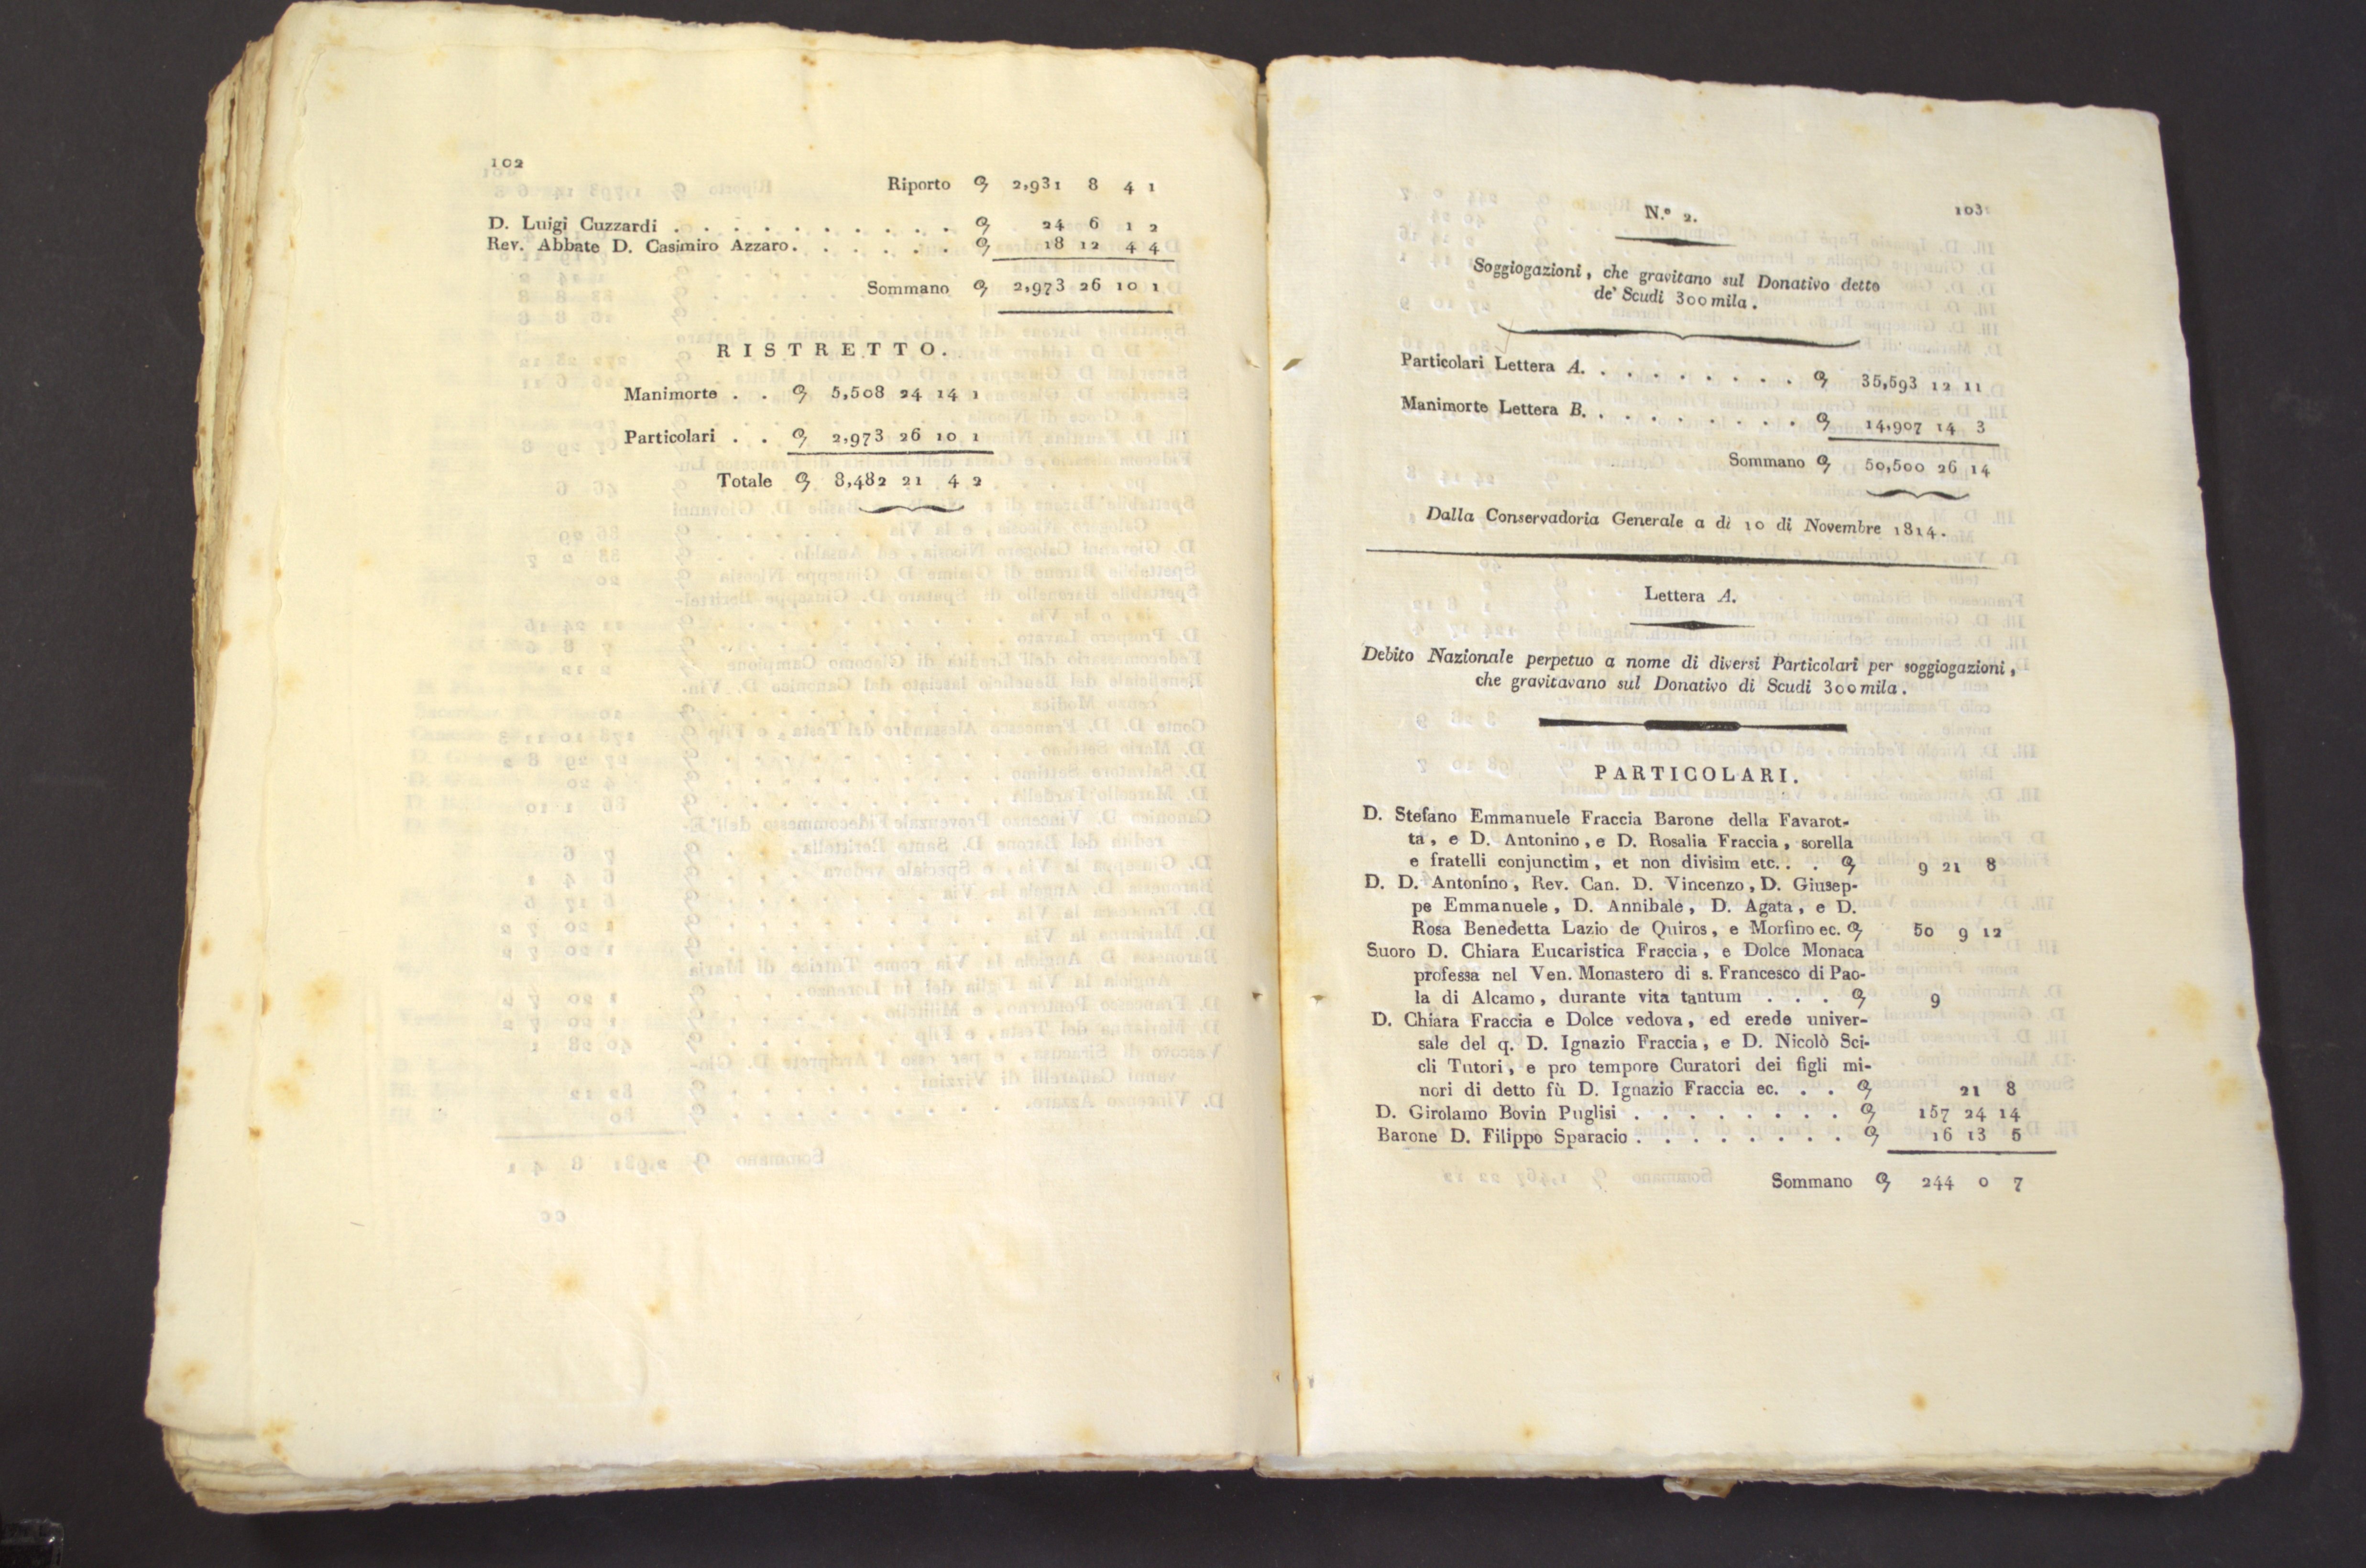 102
Riporto 2,931 8 4 1
D. Luigi Cuzzardi . . . . . . . . . . 24 6 1 2
Rev. Abbate D. Casimiro Azzaro. . . . . . 18 12 4 4
Sommano 2,973 26 10 1
RISTRETTO.
Manimorte . . 5,508 24 14 1
Particolari . . 2,973 26 10 1
Totale 8,482 21 4 2
103
N.º 2.
Soggiogazioni, che gravitano sul Donativo detto
de' Scudi 300mila.
Particolari Lettera A. . . . . . . . . 35,593 12 11
Manimorte Lettera B. . . . . . . . . 14,907 14 3
Sommano 50,500 26 14
Dalla Conservadoria Generale a dì 10 di Novembre 1814.
Lettera A.
Debito Nazionale perpetuo a nome di diversi Particolari per soggiogazioni,
che gravitavano sul Donativo di Scudi 300mila.
PARTICOLARI.
D. Stefano Emmanuele Fraccia Barone della Favarot-
ta, e D. Antonino, e D. Rosalia Fraccia, sorella
e fratelli conjunctim, et non divisim etc. . . 9 21 8
D. D. Antonino, Rev. Can. D. Vincenzo, D. Giusep-
pe Emmanuele, D. Annibale, D. Agata, e D.
Rosa Benedetta Lazio de Quiros, e Morfino ec. 50 9 12
Suoro D. Chiara Eucaristica Fraccia, e Dolce Monaca
professa nel Ven. Monastero di s. Francesco di Pao-
la di Alcamo, durante vita tantum . . . 9
D. Chiara Fraccia e Dolce vedova, ed erede univer-
sale del q. D. Ignazio Fraccia, e D. Nicolò Sci-
cli Tutori, e pro tempore Curatori dei figli mi-
nori di detto fù D. Ignazio Fraccia ec. . . 21 8
D. Girolamo Bovin Puglisi . . . . . . . . 157 24 14
Barone D. Filippo Sparacio . . . . . . . . 16 13 5
Sommano 244 0 7